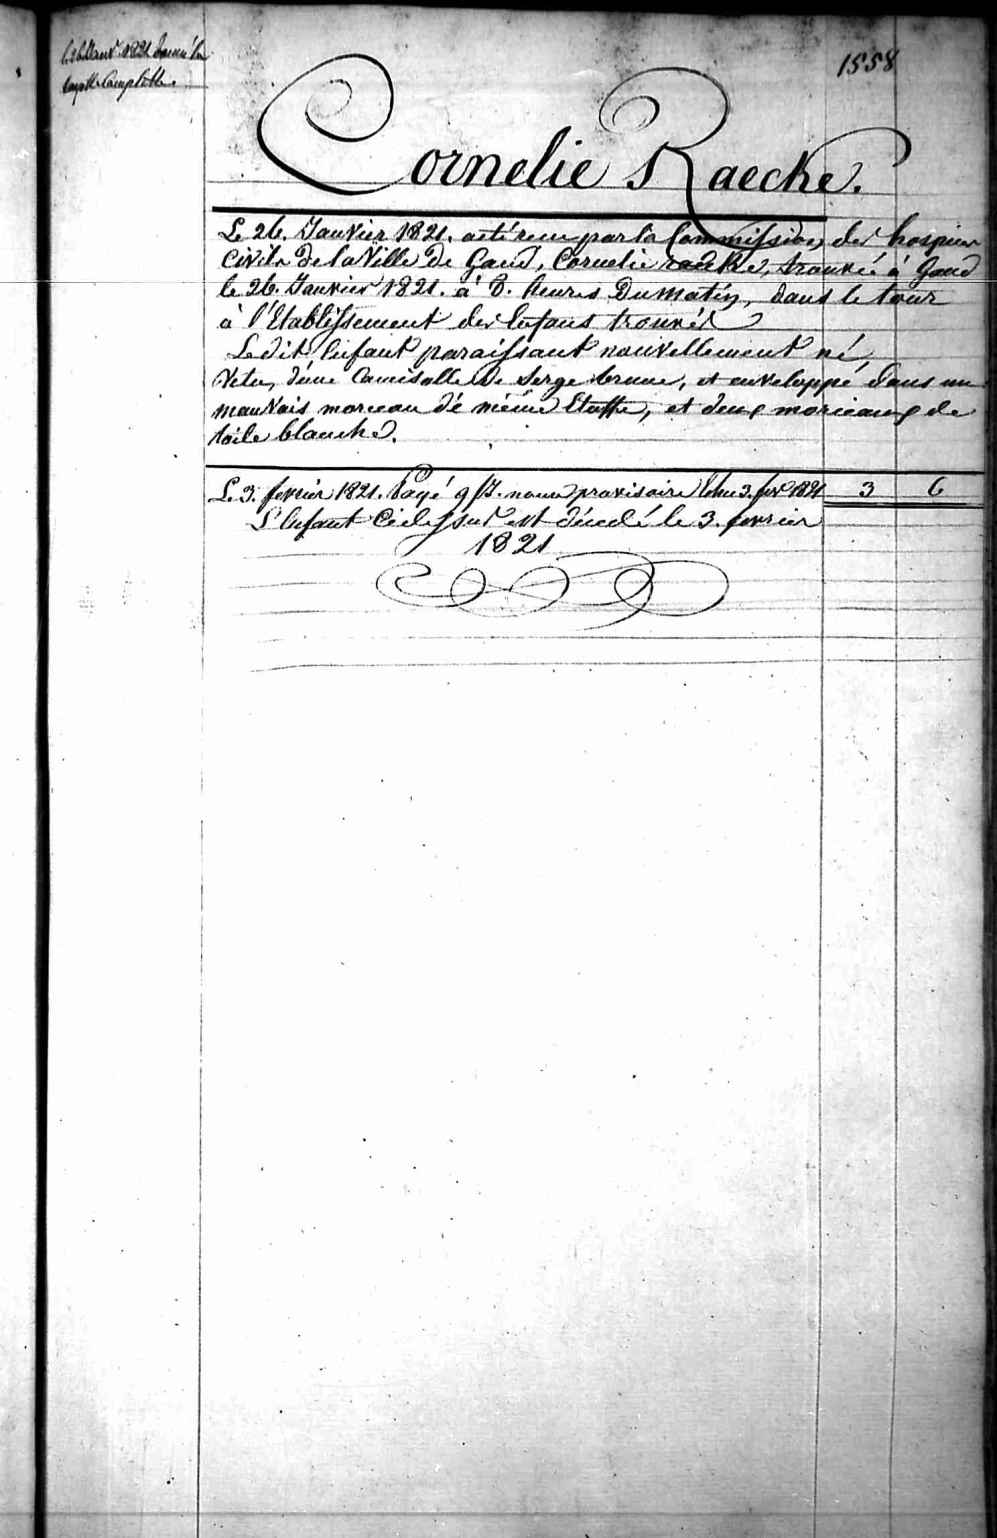 le 26 Janv. 1821 donné la
layette Complette.
1558
Cornelie Raecke.
Le 26. Janvier 1821. a été reçu par la Commission des hospices
Civils de la Ville de Gand, Cornelie raecke, trouvée à Gand
le 26. Janvier 1821. à 6. heures Du matin, dans le tour
à l'Etablissement des Enfans trouvés
Le dit Enfant paraissant nouvellement né,
Vetu, d'une Camisolle de Serge brune, et enveloppé dans un
mauvais morceau dé même Etoffe, et deux morceaux de
toile blanche.
Le 3. fevrier 1821. Payé 9 js. nourr provisoire Echu 3. fevr 1821 3 6
L'Enfant Cidessus est décédé le 3. fevrier
1821